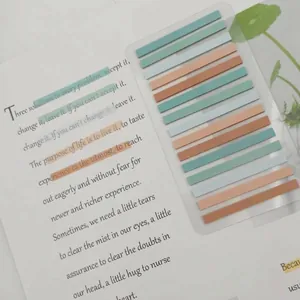 Three solutions to every problem: accept it,
change it, leave it. If you can't accept it,
change it. If you can't change it, leave it.
The purpose of life is to live it, to taste
experience to the utmost, to reach
out eagerly and without fear for
newer and richer experience.
Sometimes, we need a little tears
to clear the mist in our eyes, a little
assurance to clear the doubts in
our head, a little hug to nurse
heart.
Becau
usu